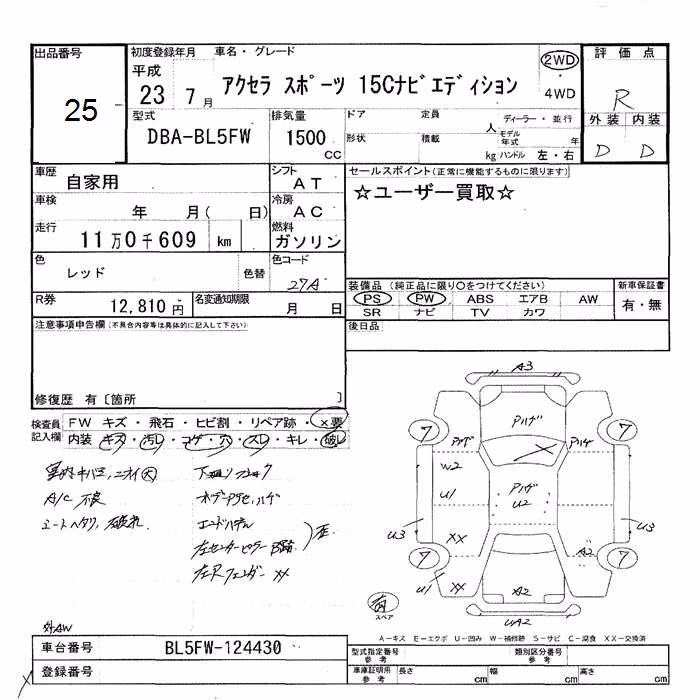 出品番号
25
初度登録年月
平成
23 7月
車名・グレード
アクセラ スポーツ 15Cナビエディション
2WD
・
4WD
評価点
R
外装 内装
D D
型式
DBA-BL5FW
排気量
1500
cc
ドア 定員 人
形状 積載 kg
ディーラー・並行
モデル年式 年
ハンドル 左・右
車歴
自家用
シフト
AT
セールスポイント(正常に機能するものに限ります)
☆ユーザー買取☆
車検
年 月( 日)
冷房
AC
走行
11万0千609 km
燃料
ガソリン
色
レッド
色替
色コード
27A
装備品 (純正品に限り○をつけてください)
PS PW ABS エアB AW
SR ナビ TV カワ
新車保証書
有・無
R券
12,810円
名変通知期限
月 日
後日品
注意事項申告欄(不具合内容等は具体的に記入して下さい)
修復歴 有〔箇所 〕
検査員
記入欄
FW キズ・飛石・ヒビ割・リペア跡・×要
内装 キズ・汚レ・コゲ・穴・スレ・キレ・破レ
A/C 不良
シートヘタリ、破れ
左センターピラー
XX
左
A3
Pハゲ
Pハゲ
Pハゲ
7
7
W2
U1
Pハゲ
U2
XX
U3
U3
7
7
A2
U1
XX
A2
UA2
有
スペア
A-キズ E-エクボ U-凹み W-補修跡 S-サビ C-腐食 XX-交換済
外AW
車台番号
BL5FW-124430
登録番号
型式指定番号
参考
類別区分番号
参考
車庫証明用
参考
長さ cm
幅 cm
高さ cm